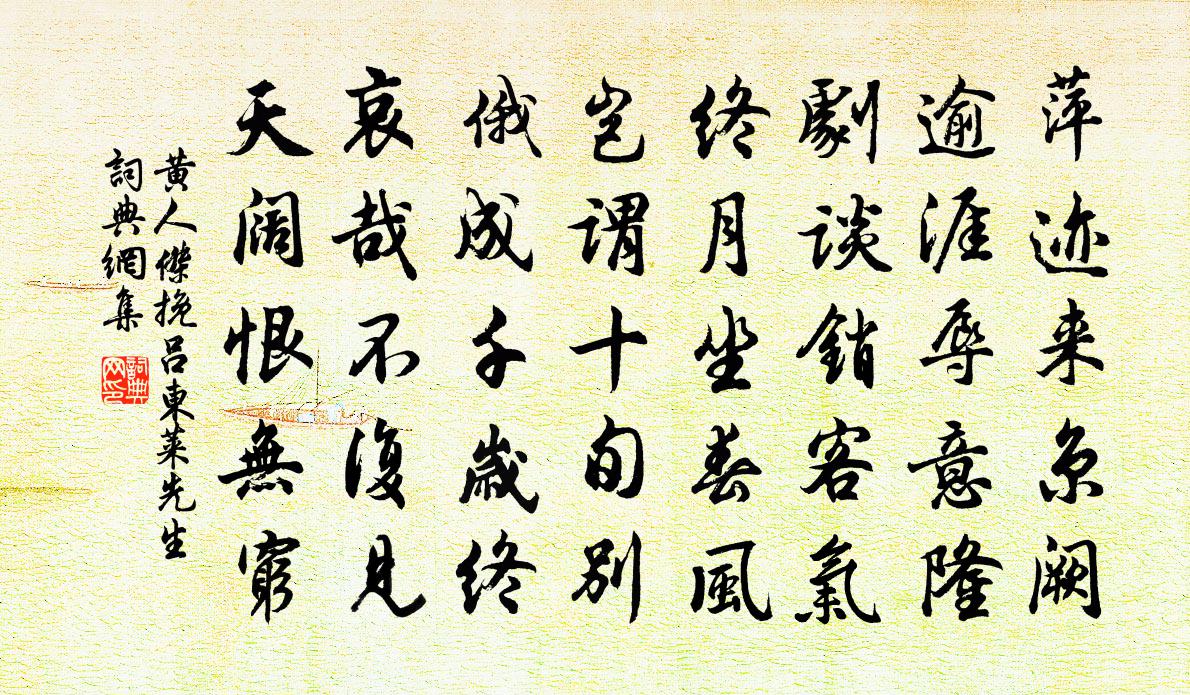 萍迹来京阙
逾涯辱意隆
劇談銷客氣
终月坐春風
岂謂十旬别
俄成千歲终
哀哉不復見
天阔恨無窮
黄人傑挽呂東萊先生
詞典網集
詞典网印